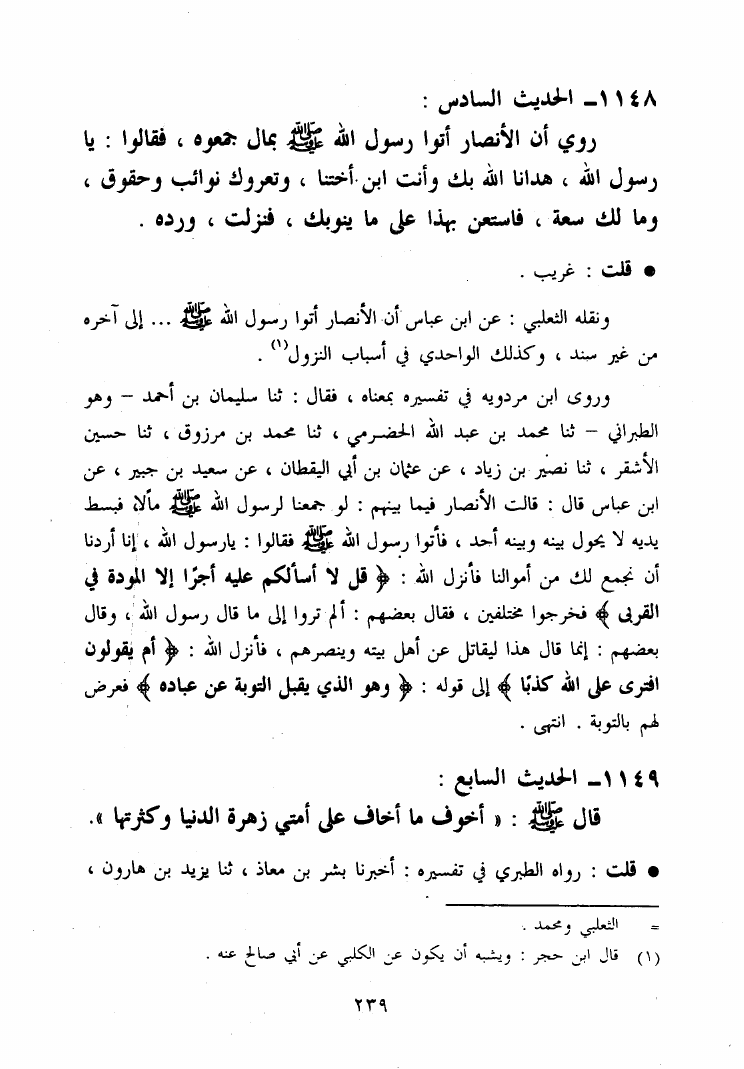 ١١٤٨ـ الحديث السادس :
روي أن الأنصار أتوا رسول الله ﷺ بمال جمعوه ، فقالوا : يا
رسول الله ، هدانا الله بك وأنت ابن أختنا ، وتعروك نوائب وحقوق ،
وما لك سعة ، فاستعن بهذا على ما ينوبك ، فنزلت ، ورده .
● قلت : غريب .
ونقله الثعلبي : عن ابن عباس أن الأنصار أتوا رسول الله ﷺ ... إلى آخره
من غير سند ، وكذلك الواحدي في أسباب النزول(١) .
وروى ابن مردويه في تفسيره بمعناه ، فقال : ثنا سليمان بن أحمد – وهو
الطبراني – ثنا محمد بن عبد الله الحضرمي ، ثنا محمد بن مرزوق ، ثنا حسين
الأشقر ، ثنا نصير بن زياد ، عن عثمان بن أبي اليقظان ، عن سعيد بن جبير ، عن
ابن عباس قال : قالت الأنصار فيما بينهم : لو جمعنا لرسول الله ﷺ مالًا، فبسط
يديه لا يحول بينه وبينه أحد ، فأتوا رسول الله ﷺ فقالوا : يارسول الله ، إنا أردنا
أن نجمع لك من أموالنا فأنزل الله : ﴿ قل لا أسألكم عليه أجرًا إلا المودة في
القربى ﴾ فخرجوا مختلفين ، فقال بعضهم : ألم تروا إلى ما قال رسول الله ، وقال
بعضهم : إنما قال هذا ليقاتل عن أهل بيته وينصرهم ، فأنزل الله : ﴿ أم يقولون
افترى على الله كذبًا ﴾ إلى قوله : ﴿ وهو الذي يقبل التوبة عن عباده ﴾ فعرض
لهم بالتوبة . انتهى .
١١٤٩ـ الحديث السابع :
قال ﷺ : « أخوف ما أخاف على أمتي زهرة الدنيا وكثرتها ».
● قلت : رواه الطبري في تفسيره : أخبرنا بشر بن معاذ ، ثنا يزيد بن هارون ،
= الثعلبي ومحمد .
(١) قال ابن حجر : ويشبه أن يكون عن الكلبي عن أبي صالح عنه .
٢٣٩